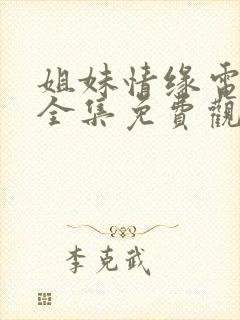 姐妹情缘電
全集免費觀
李克武